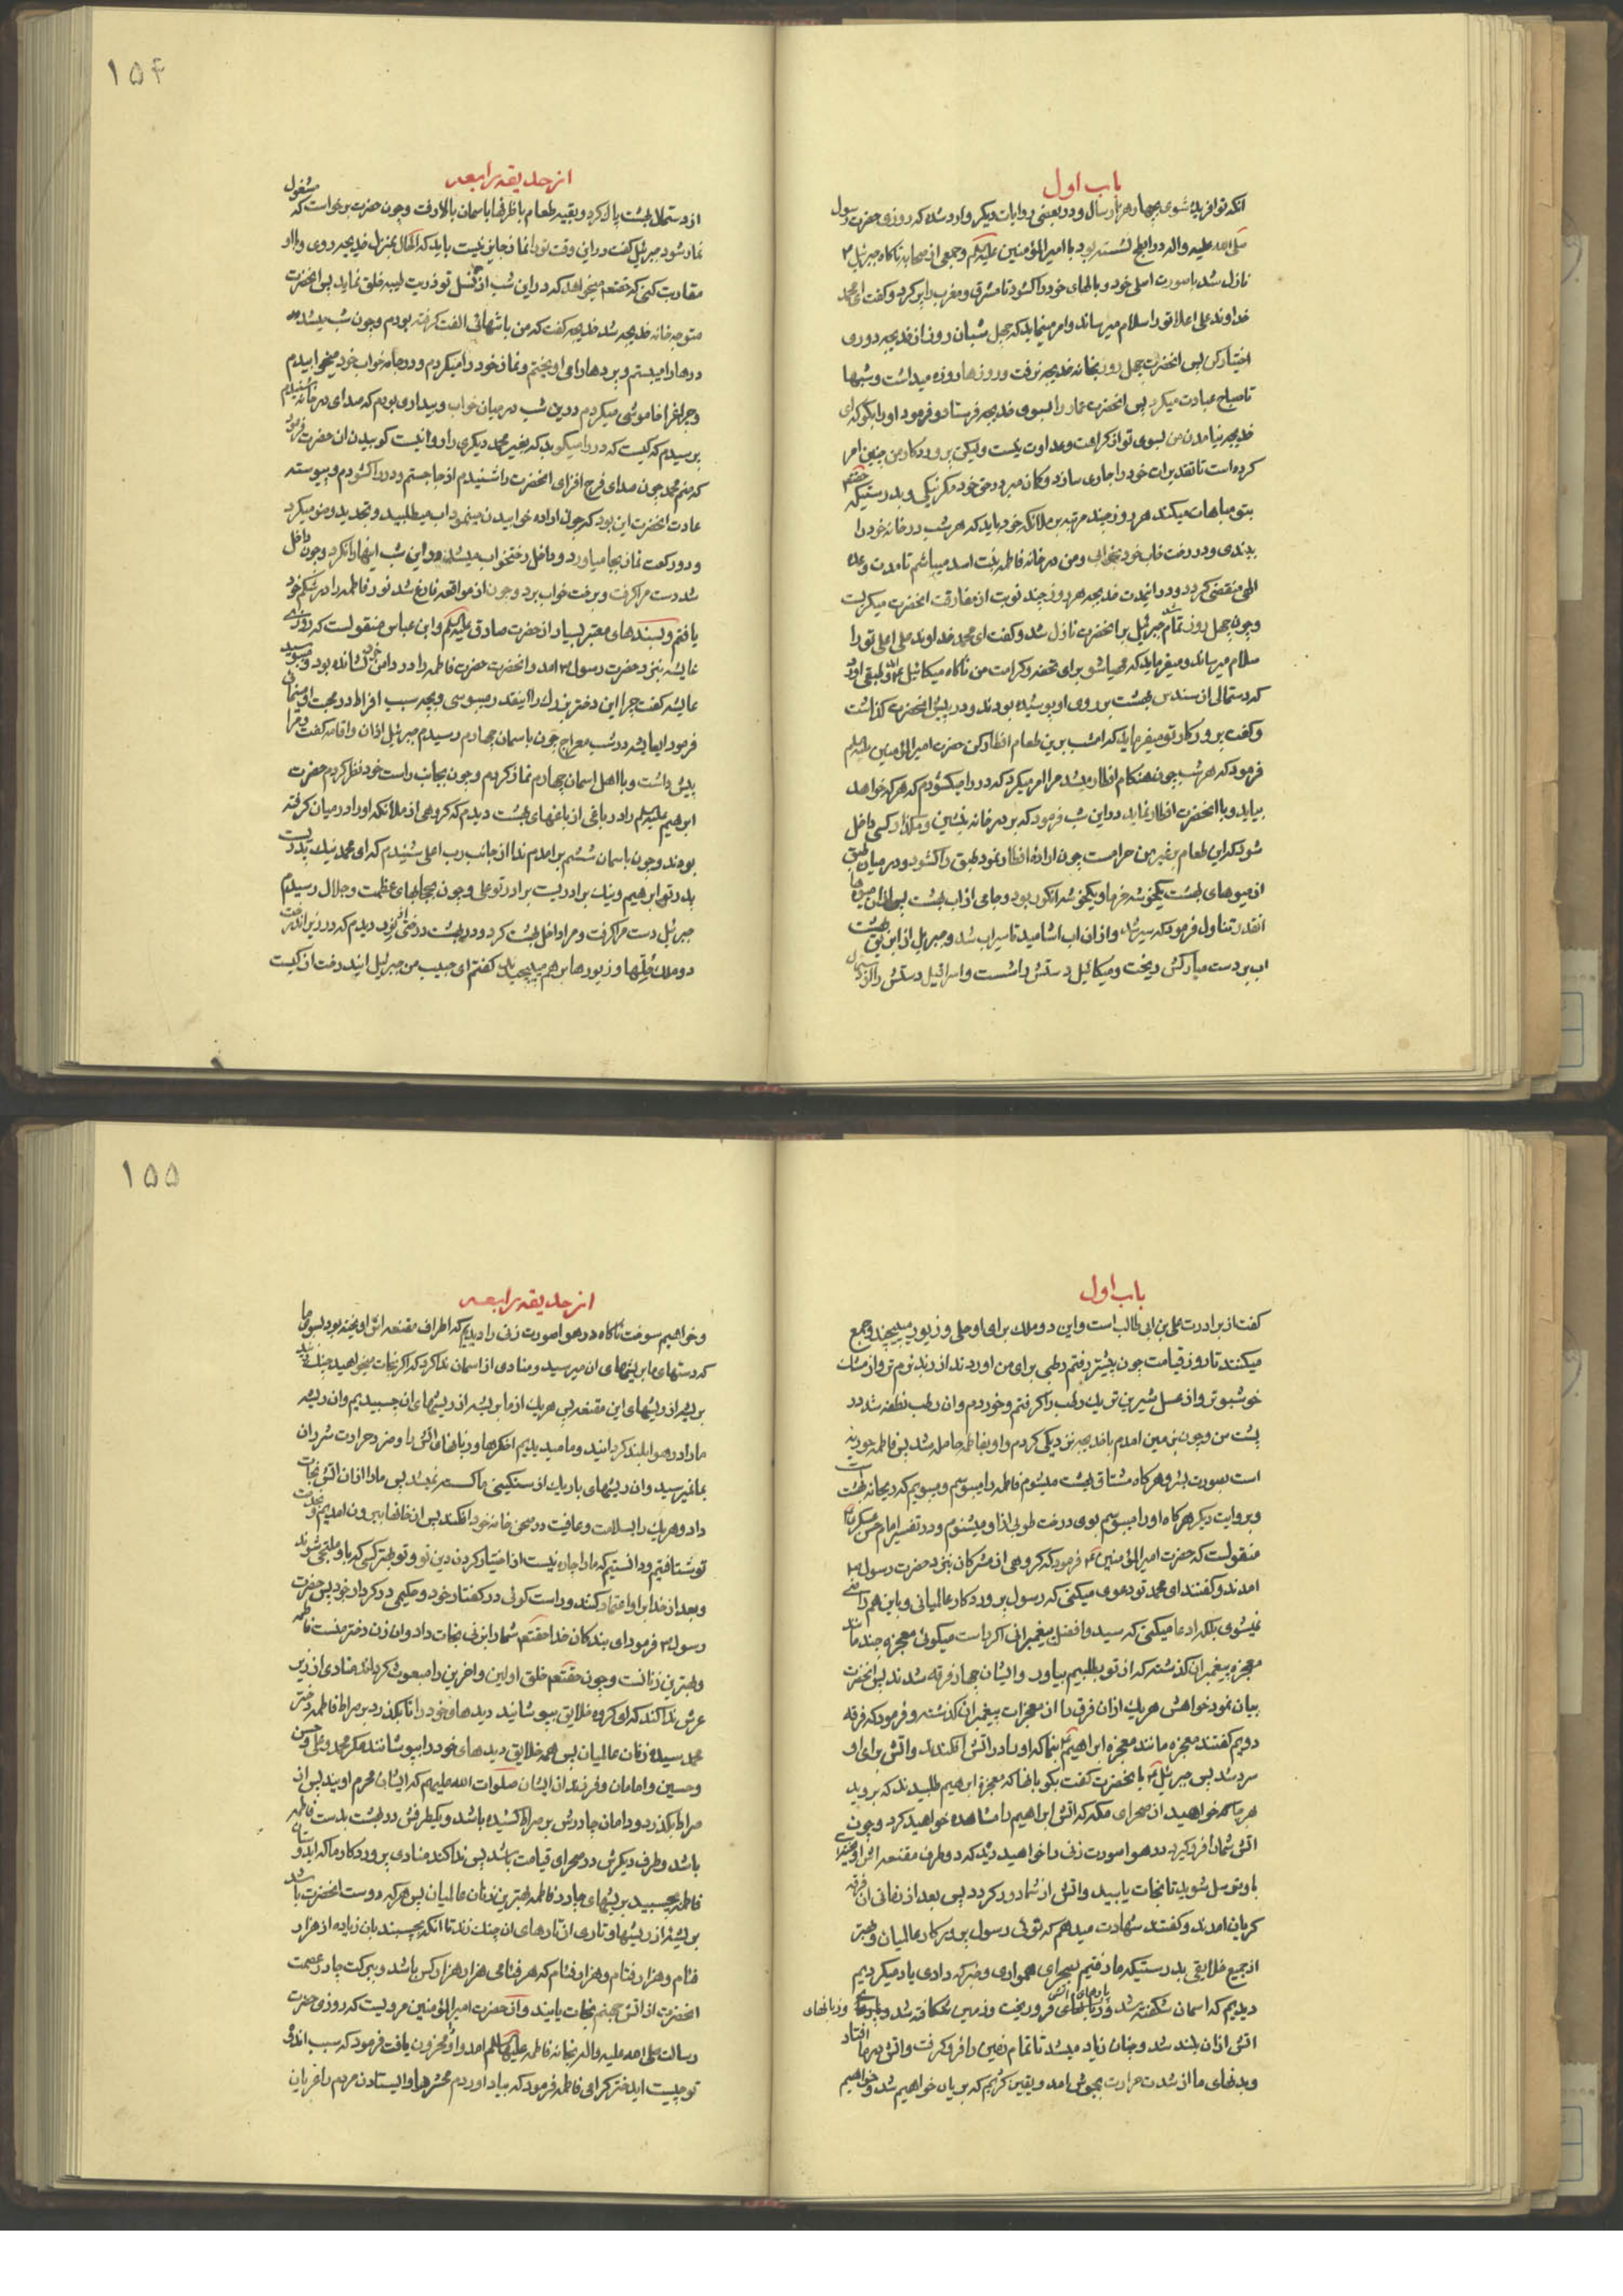 باب اول
انکه تو افریده شوی بچهار هزار سال و در بعضی روایات دیکر وارد شده که روزی حضرت رسول
صلی الله علیه واله در ابطح نشسته بود با امیر المؤمنین علیه السلم و جمعی از صحابه ناکاه جبرئیل
نازل شد با صورت اصلی خود و بالهای خود را کشود تا مشرق و مغرب را پر کرد و کفت ای محمد
خداوند علی اعلا تو را سلام میرساند و امر مینماید که چهل شبان روز از خدیجه دوری
اختیار کن پس انحضرت چهل روز بخانه خدیجه نرفت و روزها روزه میداشت و شبها
تا صباح عبادت میکرد پس انحضرت عمار را بسوی خدیجه فرستاد و فرمود او را بکو که ای
خدیجه نیامدن من بسوی تو از کراهت و عداوت نیست ولیکن پروردکار من چنین امر
کرده است تا تقدیرات خود را جاری سازد و کمان مبر در حق خود مکر نیکی و بدرستیکه
بتو مباهات میکند هر روز چند مرتبه بر ملائکه خود باید که هر شب در خانه خود را
ببندی و در رخت خاب خود بخوابی و من در خانه فاطمه بنت اسد میباشم تا مدت وعده
الهی منقضی کردد و در انمدت خدیجه هر روز چند نوبت از مفارقت انحضرت میکریست
و چون چهل روز تمام شد جبرئیل بر انحضرت نازل شد و کفت ای محمد خداوند علی اعلی تو را
سلام میرساند و میفرماید که مهیا شو برای تحفه و کرامت من ناکاه میکائیل نازل شد و طبقی اورد
که دستمالی از سندس بهشت بر روی او پوشیده بودند و در پیش انحضرت کذاشت
و کفت پروردکار تو میفرماید که امشب برین طعام افطار کن حضرت امیر المؤمنین علیه السلم
فرمود که هر شب چون هنکام افطار میشد مرا امر میکرد که در را میکشودم که هر که خواهد
بیاید و با انحضرت افطار نماید در این شب فرمود که بر در خانه بنشین و مکذار کسی داخل
شود که این طعام بر غیر من حرامست چون اراده افطار نمود طبق را کشود و در میان طبق
از میوهای بهشت یکخوشه خرما و یکخوشه انکور بود و جامی از اب بهشت پس از ان میوها
انقدر تناول فرمود که سیر شد و از ان اب اشامید تا سیراب شد و جبرئیل از ابریق بهشت
اب بر دست مبارکش ریخت و میکائیل دستش را شست و اسرافیل دستش را
۱۵۴
از حدیقه رابعه
از دستمال بهشت پاک کرد و بقیه طعام با ظرفها باسمان بالا رفت و چون حضرت برخواست که مشغول
نماز شود جبرئیل کفت در این وقت تو را نماز جایز نیست باید که الحال بمنزل خدیجه روی و با او
مقاربت کنی که حقتعم میخواهد که در این شب از نسل تو ذریت طیبه خلق نماید پس انحضرت
متوجه خانه خدیجه شد خدیجه کفت که من با تنهائی الفت کرفته بودم و چون شب میشد
درها را میبستم و پردها را می اویختم و نماز خود را میکردم و در جامه خواب خود میخوابیدم
و چراغرا خاموش میکردم در این شب در میان خواب و بیداری بودم که صدای در خانه شنیدم
پرسیدم که کیست که در را میکوبد که بغیر محمد دیکری را روا نیست کوبیدن ان حضرت فرمود
که منم محمد چون صدای فرح افزای انحضرت را شنیدم از جا جستم و در را کشودم و پیوسته
عادت انحضرت این بود که چون اراده خوابیدن مینمود اب میطلبید و تجدید وضو میکرد
و دو رکعت نماز بجا میاورد و داخل رختخواب میشد در این شب اینها را نکرد و چون داخل
شد دست مرا کرفت و برخت خواب برد و چون از مواقعه فارغ شد نور فاطمه را در شکم خود
یافتم و بسندهای معتبر بسیار از حضرت صادق علیه السلم و ابن عباس منقولست که روزی
عایشه نزد حضرت رسول ص امد و انحضرت حضرت فاطمه را در دامن خود نشانده بود و میبوسید
عایشه کفت چرا این دختر بزرک را اینقدر میبوسی و بچه سبب افراط در محبت او مینمائی
فرمود ایعایشه در شب معراج چون باسمان چهارم رسیدم جبرئیل اذان و اقامه کفت و مرا
پیش داشت و با اهل اسمان چهارم نماز کردم و چون بجانب راست خود نظر کردم حضرت
ابرهیم علیه السلم را در باغی از باغهای بهشت دیدم که کروهی از ملائکه او را در میان کرفته
بودند و چون باسمان ششم برامدم ندا از جانب رب اعلی شنیدم که ای محمد نیک پدریست
پدر تو ابرهیم و نیک برادریست برادر تو علی و چون بحجابهای عظمت و جلال رسیدم
جبرئیل دست مرا کرفت و مرا داخل بهشت کرد و در بهشت درختی از نور دیدم که در زیر اندرخت
دو ملک حلها و زیورها بر هم میپیچیدند کفتم ای حبیب من جبرئیل ایندرخت از کیست
باب اول
کفت از برادرت علی بن ابی طالب است و این دو ملک برای او حلی و زیور میپیچند و جمع
میکنند تا روز قیامت چون پیشتر رفتم رطبی برای من اوردند از زبد نرم تر و از مشک
خوشبوتر و از عسل شیرین تر یک رطب را کرفتم و خوردم و ان رطب نطفه شد در
پشت من و چون بزمین امدم با خدیجه نزدیکی کردم و او بفاطمه حامله شد پس فاطمه حوریه
است بصورت بشر و هر کاه مشتاق بهشت میشوم فاطمه را میبوسم و میبویم که ریحانه بهشت است
و بروایت دیکر هر کاه او را میبوسم بوی درخت طوبی از او میشنوم و در تفسیر امام حسن عسکری
منقولست که حضرت امیر المؤمنین ع فرمود که کروهی از مشرکان نزد حضرت رسول ص
امدند و کفتند ای محمد تو دعوی میکنی که رسول پروردکار عالمیانی و باین هم راضی
نمیشوی بلکه ادعا میکنی که سید و افضل پیغمبرانی اکر راست میکوئی معجزه چند مانند
معجزه پیغمبران کذشته که از تو بطلبیم بیاور و ایشان چهار فرقه شدند پس انحضرت
بیان نمود خواهش هریک از ان فرق را از معجزات پیغمبران کذشته و فرمود که فرقه
دویم کفتند معجزه مانند معجزه ابراهیم بنما که او را در اتش افکندند و اتش برای او
سرد شد پس جبرئیل ع بانحضرت کفت بکو بانها که معجزه ابرهیم طلبیدند که بروید
هر جا که خواهید از صحرای مکه که اتش ابراهیم را مشاهده خواهید کرد و چون
اتش شما را فرو کیرد در هوا صورت زنی را خواهید دید که دو طرف مقنعه اش اویخته
باو توسل شوید تا نجات یابید و اتش از شما دور کردد پس بعد از زمانی ان فرقه
کریان امدند و کفتند شهادت میدهم که توئی رسول پروردکار عالمیان و بهتر
از جمیع خلایق بدرستیکه ما رفتیم بصحرای همواری و خبر که دادی یاد میکردیم
دیدیم که اسمان شکافته شد و پارهای اتش فرو ریخت و زمین شکافته شد و زبانهای
اتش از ان بلند شد و چنان زیاد میشد تا تمام زمین را فرو کرفت و اتش در ما افتاد
و بدنهای ما از شدت حرارت بجوش امد و یقین کردیم که بریان خواهیم شد و خواهیم
۱۵۵
از حدیقه رابعه
و خواهیم سوخت ناکاه در هوا صورت زنی را دیدیم که اطراف مقنعه اش اویخته بود بسوی ما
که دستهای ما بریشهای ان میرسید و منادی از اسمان ندا کرد که اکر نجات میخواهید چنک زنید
بر بعضی از ریشهای این مقنعه پس هریک از ما بریشه از ریشهای ان چسبیدیم و ان ریشه
ما را در هوا بلند کردانید و ما میدیدیم اخکرها و زبانهای اتش را و ضرر حرارت و شرر ان
بما نمیرسید و ان ریشهای باریک از سنکینی ما کسسته نمیشد پس ما را از ان اتش نجات
داد و هریک را بسلامت و عافیت در صحن خانه خود افکند پس از خانها بیرون امدیم و بخدمت
تو شتافتیم و دانستیم که ما را چاره نیست از اختیار کردن دین تو و تو بهتر کسی که باو ملتجی شوند
و بعد از خدا بر او اعتماد کنند و راست کوئی در کفتار خود و حکیمی در کردار خود پس حضرت
رسول ص فرمود ای بندکان خدا حقتعم شما را بزنی نجات داد و ان زن دختر منست فاطمه
و بهترین زنانست و چون حقتعم خلق اولین و اخرین را مبعوث کرداند منادی از زیر
عرش ندا کند که ای کروه خلایق بپوشانید دیدهای خود را تا بکذرد بر صراط فاطمه دختر
محمد سیده زنان عالمیان پس همه خلایق دیدهای خود را بپوشانند مکر محمد و علی و حسن
و حسین و امامان و فرزندان ایشان صلوات الله علیهم که ایشان محرم اویند پس از
صراط بکذرد و دامان چادرش بر صراط کشیده باشد و یکطرفش در بهشت بدست فاطمه
باشد و طرف دیکرش در صحرای قیامت باشد پس ندا کند منادی پروردکار ما که ای دوستان
فاطمه بچسبید بریشهای چادر فاطمه بهترین زنان عالمیان پس هر که دوست انحضرت باشد
بریشه از ریشها و تاری از تارهای ان چنک زند تا انکه بچسبند بان زیاده از هزار
فئام و هزار فئام و هزار فئام که هر فئامی هزار هزار کس باشد و ببرکت چادر عصمت
انحضرت از اتش جهنم نجات یابند و از حضرت امیر المؤمنین مرویست که روزی حضرت
رسالت صلی الله علیه واله بخانه فاطمه علیها السلم امد و او را محزون یافت فرمود که سبب اندوه
تو چیست ایدختر کرامی فاطمه فرمود که بیاد اوردم محشر را و ایستادن مردم را عریان